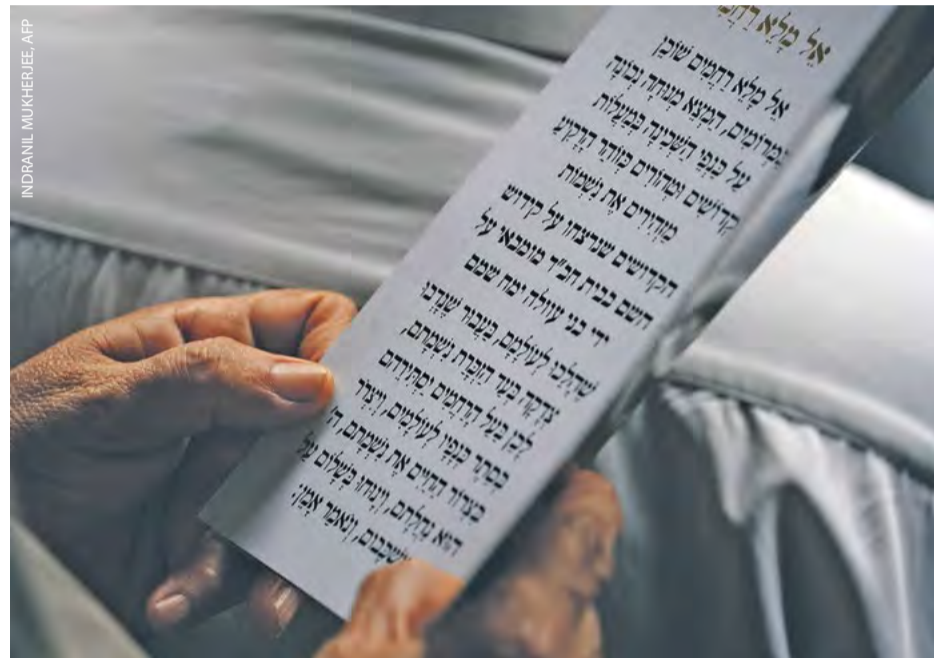 INDRANIL MUKHERJEE, AFP
אֵל מָלֵא
אֵל מָלֵא רַחֲמִים שׁוֹכֵן
בַּמְּרוֹמִים, הַמְצֵא מְנוּחָה נְכוֹנָה
עַל כַּנְפֵי הַשְּׁכִינָה בְּמַעֲלוֹת
קְדוֹשִׁים וּטְהוֹרִים כְּזוֹהַר הָרָקִיעַ
מַזְהִירִים אֶת נִשְׁמוֹת
הקדושים שנרצחו על קידוש
השם בבית חב"ד מומבאי על
ידי בני עוולה ימח שמם
שֶׁהָלְכוּ לְעוֹלָמָם, בַּעֲבוּר שֶׁנָּדְבוּ
צְדָקָה בְּעַד הַזְכָּרַת נִשְׁמָתָם,
לָכֵן בַּעַל הָרַחֲמִים יַסְתִּירֵהֶם
בְּסֵתֶר כְּנָפָיו לְעוֹלָמִים, וְיִצְרוֹר
בִּצְרוֹר הַחַיִּים אֶת נִשְׁמָתָם, ה'
הוּא נַחֲלָתָם, וְיָנוּחוּ בְּשָׁלוֹם עַל
וְנֹאמַר אָמֵן: